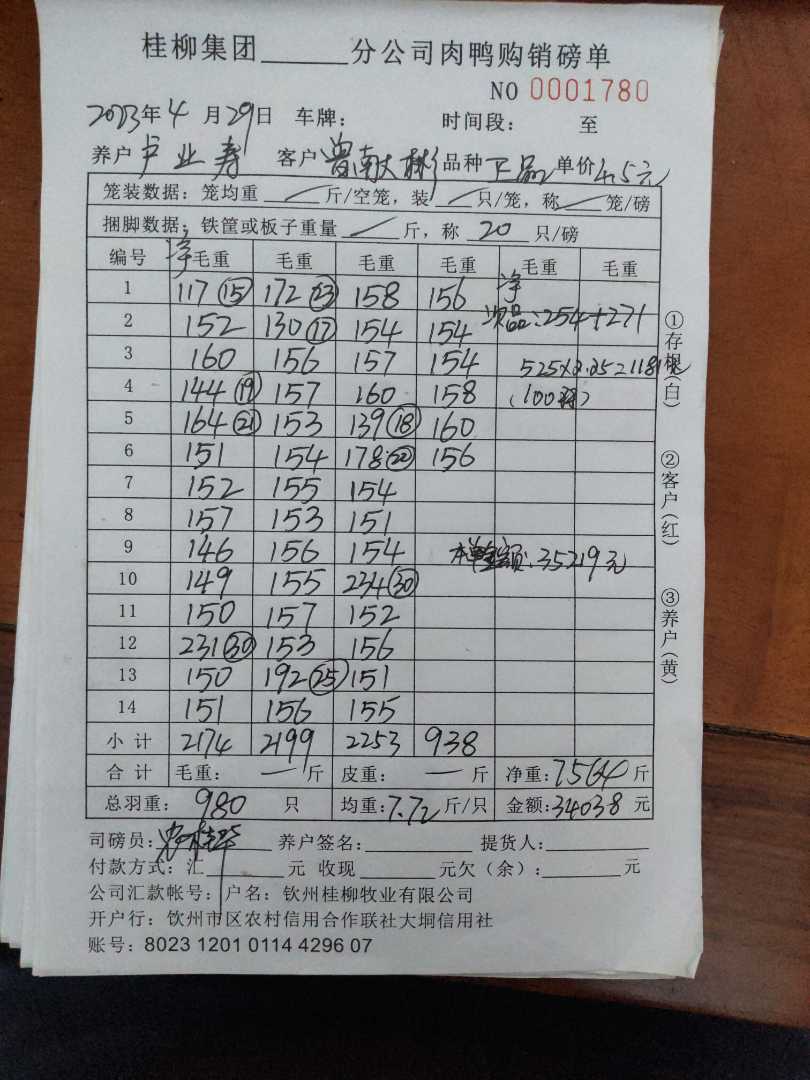 桂柳集团______分公司肉鸭购销磅单
NO 0001780
2023年4月29日 车牌: 时间段: 至
养户 卢业寿 客户 曾献彬 品种 正品 单价 4.5元
笼装数据: 笼均重 / 斤/空笼, 装 / 只/笼, 称 / 笼/磅
捆脚数据: 铁筐或板子重量 / 斤, 称 20 只/磅
编号 净毛重 毛重 毛重 毛重 毛重 毛重
1 117⑮ 172㉓ 158 156 净
2 152 130⑰ 154 154 次品:254+271
3 160 156 157 154 525×2.25=1181元
4 144⑲ 157 160 158 (100羽)
5 164㉑ 153 139⑱ 160
6 151 154 178㉒ 156
7 152 155 154
8 157 153 151
9 146 156 154 本单金额:35219元
10 149 155 234㉚
11 150 157 152
12 231㉚ 153 156
13 150 192㉕ 151
14 151 156 155
小计 2174 2199 2253 938
合计 毛重: — 斤 皮重: — 斤 净重:7564斤
总羽重: 980 只 均重:7.72斤/只 金额:34038元
司磅员: 养户签名: 提货人:
付款方式: 汇______元 收现______元欠(余):______元
公司汇款帐号: 户名: 钦州桂柳牧业有限公司
开户行: 钦州市区农村信用合作联社大垌信用社
账号: 8023 1201 0114 4296 07
①存根(白)
②客户(红)
③养户(黄)